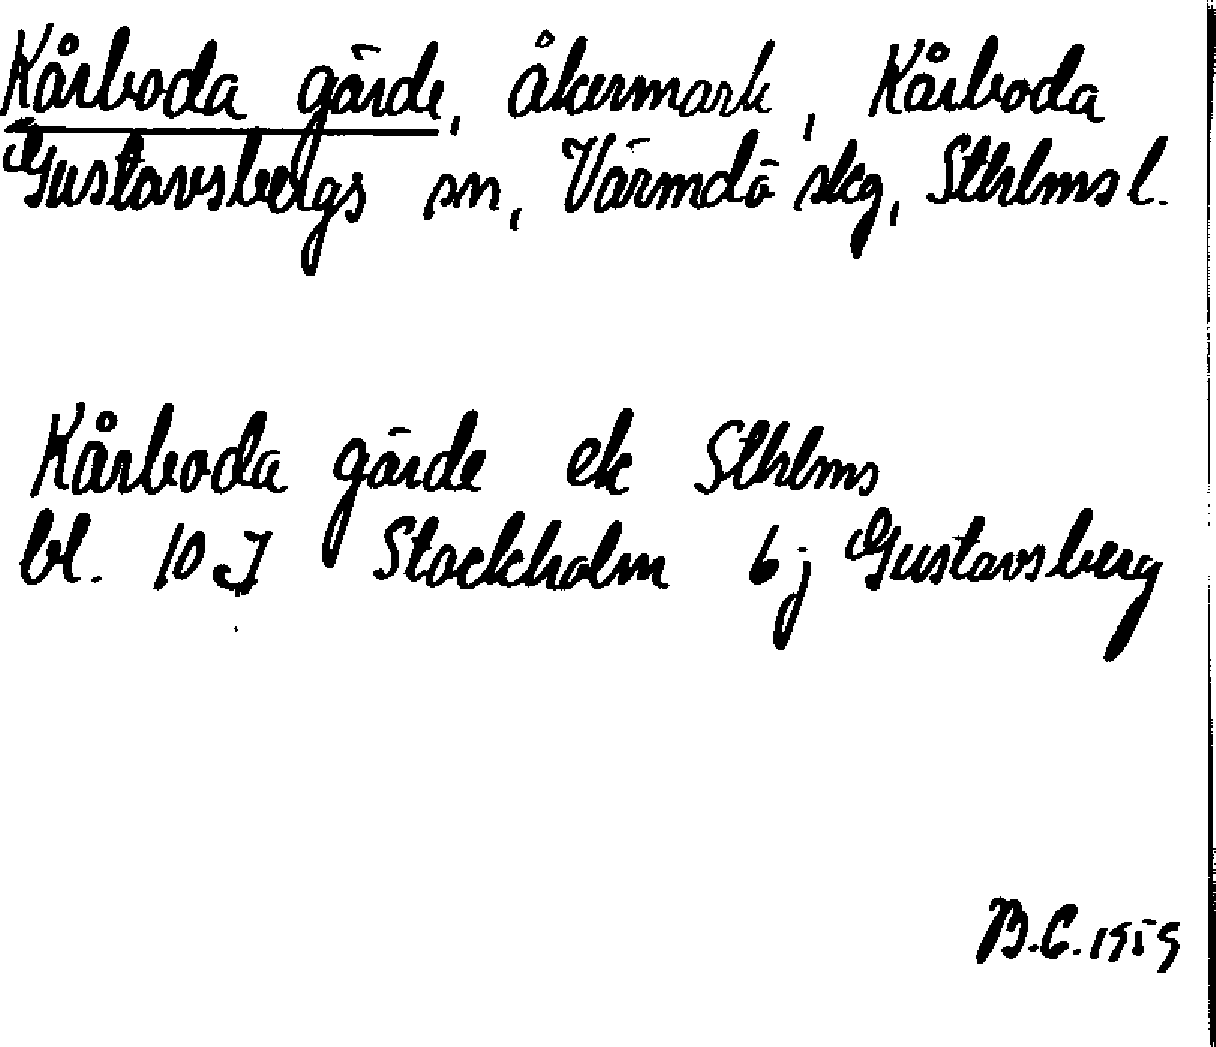 Kårboda gärde, åkermark, Kårboda
Gustavsbergs sn, Värmdö skg, Sthlms l.
Kårboda gärde ek Sthlms
bl. 10 J Stockholm 6 j Gustavsberg
B.C. 1959